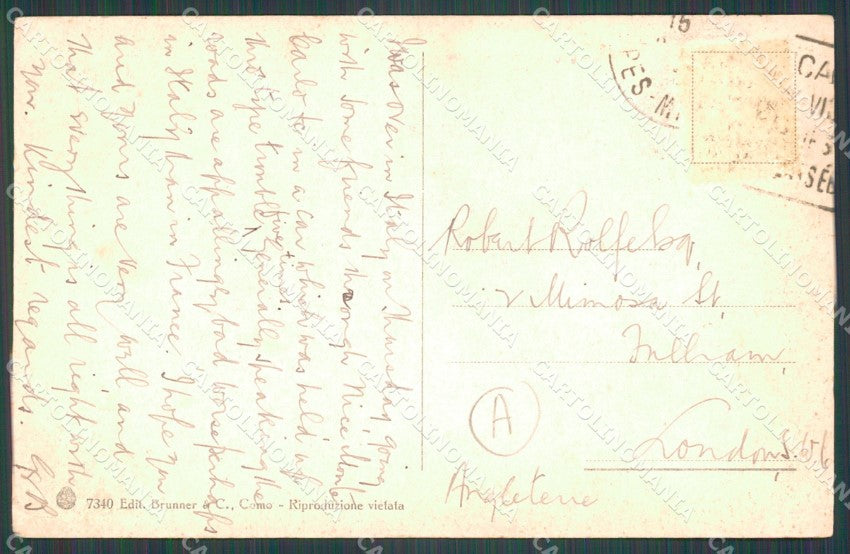 I was over in Italy on Thursday, going
with some friends through Nice, Monte
Carlo &c in a car which was held up
thro' tyre trouble five times. Generally speaking the
roads are appallingly bad worse perhaps
in Italy than in France. I hope you
and yours are very well and
that everything is all right with
you. Kindest regards.
Robert Rolfe Esq.
2 Mimosa St,
Fulham,
London, S.W.6
Angleterre
A
15
PES-M
CA
VI
7340 Edit. Brunner & C., Como - Riproduzione vietata
CARTOLINOMANIA